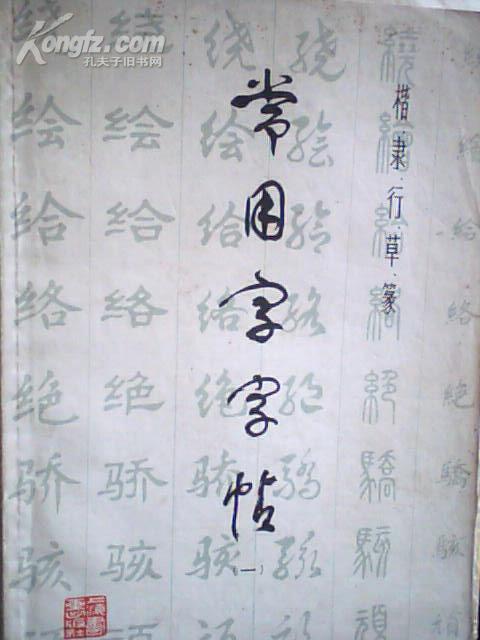 Kongfz.com
孔夫子旧书网
常用字字帖
(一)
楷·隶·行·草·篆
绕 绕 绕 绕 繞
绘 绘 绘 绘 繪 绘
给 给 给 给 給 给
络 络 络 络 絡 络
绝 绝 绝 绝 絕 絶
骄 骄 骄 驕 驕 驕
骇 骇 骇 駭 駭 駭